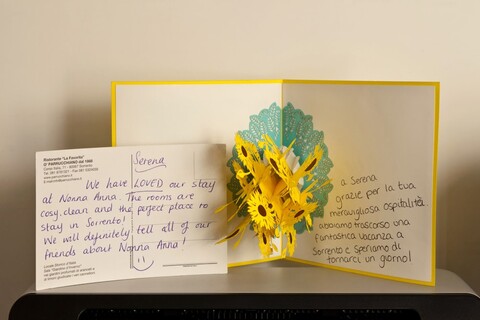 Ristorante "La Favorita"
O' PARRUCCHIANO dal 1868
Serena
We have LOVED our stay
at Nonna Anna. The rooms are
cosy, clean and the perfect place to
stay in Sorrento!
We will definitely tell all of our
friends about Nonna Anna!
a Serena
grazie per la tua
meravigliosa ospitalità
abbiamo trascorso una
fantastica vacanza a
Sorrento e speriamo di
tornarci un giorno!